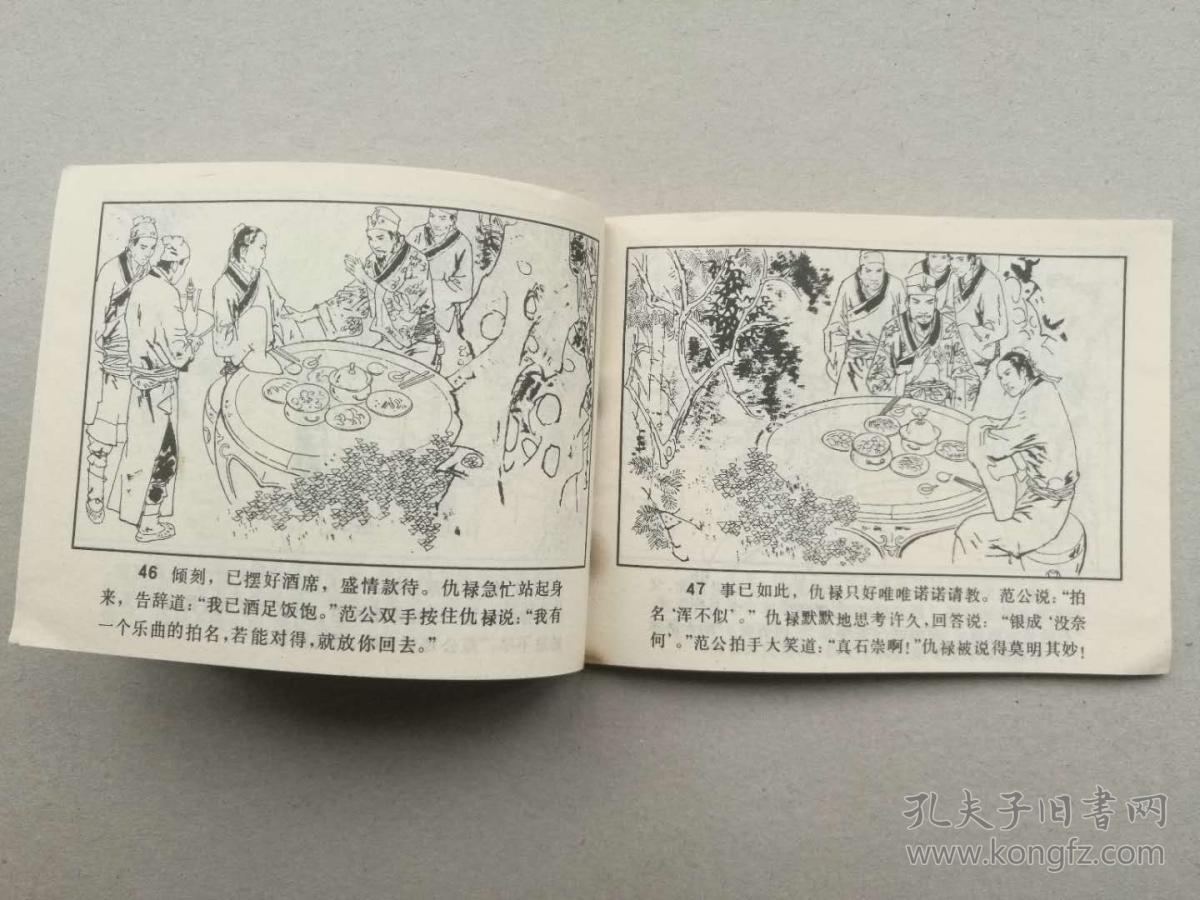 46 倾刻，已摆好酒席，盛情款待。仇禄急忙站起身
来，告辞道：“我已酒足饭饱。”范公双手按住仇禄说：“我有
一个乐曲的拍名，若能对得，就放你回去。”
47 事已如此，仇禄只好唯唯诺诺请教。范公说：“拍
名‘浑不似’。” 仇禄默默地思考许久，回答说：“银成‘没奈
何’。”范公拍手大笑道：“真石崇啊！”仇禄被说得莫明其妙！
孔夫子旧書网
www.kongfz.com